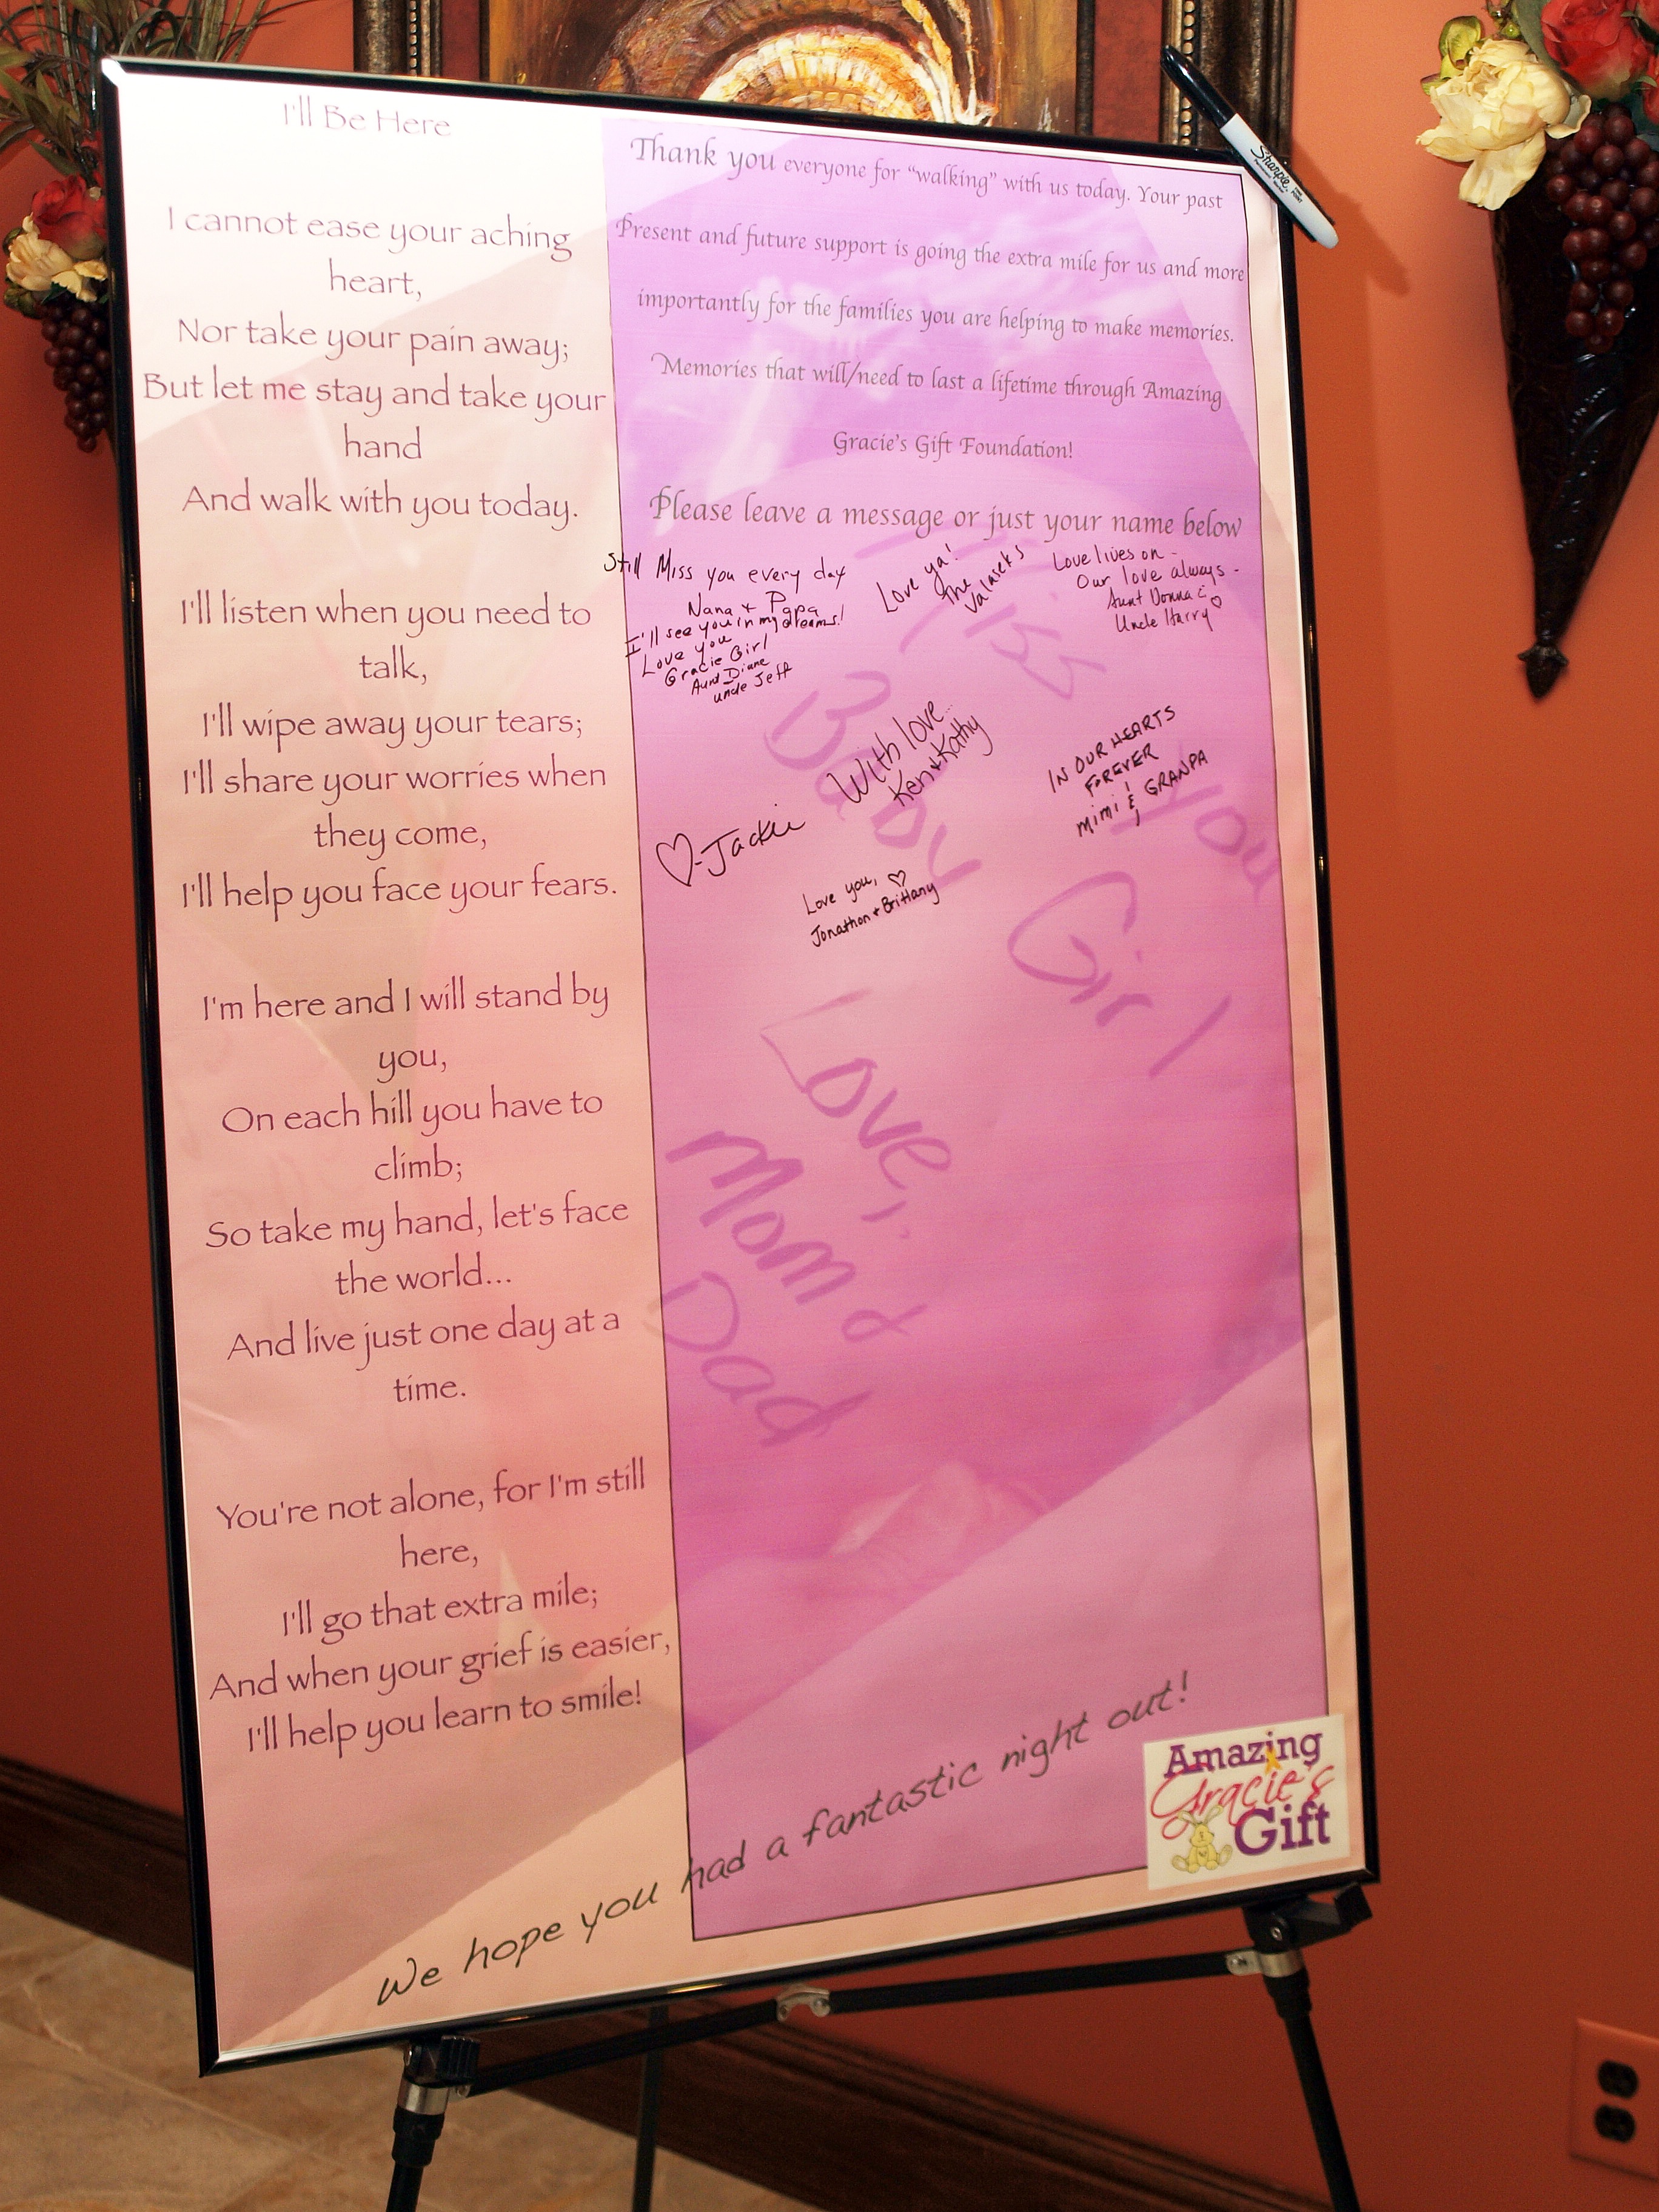 I'll Be Here
I cannot ease your aching
heart,
Nor take your pain away;
But let me stay and take your
hand
And walk with you today.
I'll listen when you need to
talk,
I'll wipe away your tears;
I'll share your worries when
they come,
I'll help you face your fears.
I'm here and I will stand by
you,
On each hill you have to
climb;
So take my hand, let's face
the world...
And live just one day at a
time.
You're not alone, for I'm still
here,
I'll go that extra mile;
And when your grief is easier,
I'll help you learn to smile!
Thank you everyone for "walking" with us today. Your past
Present and future support is going the extra mile for us and more
importantly for the families you are helping to make memories.
Memories that will/need to last a lifetime through Amazing
Gracie's Gift Foundation!
Please leave a message or just your name below
Still Miss you every day
Nana + Papa
I'll see you in my dreams!
Love you
Gracie Girl
Aunt Diane
uncle Jeff
Love ya!
The
Valaseks
Love lives on -
Our love always -
Aunt Donna &
Uncle Harry
With love...
Ken + Kathy
IN OUR HEARTS
FOREVER
mimi & GRANPA
Jackie
Love you,
Jonathon + Brittany
Miss you
Baby Girl
Love,
Mom &
Dad
We hope you had a fantastic night out!
Amazing
Gracie's
Gift
Sharpie